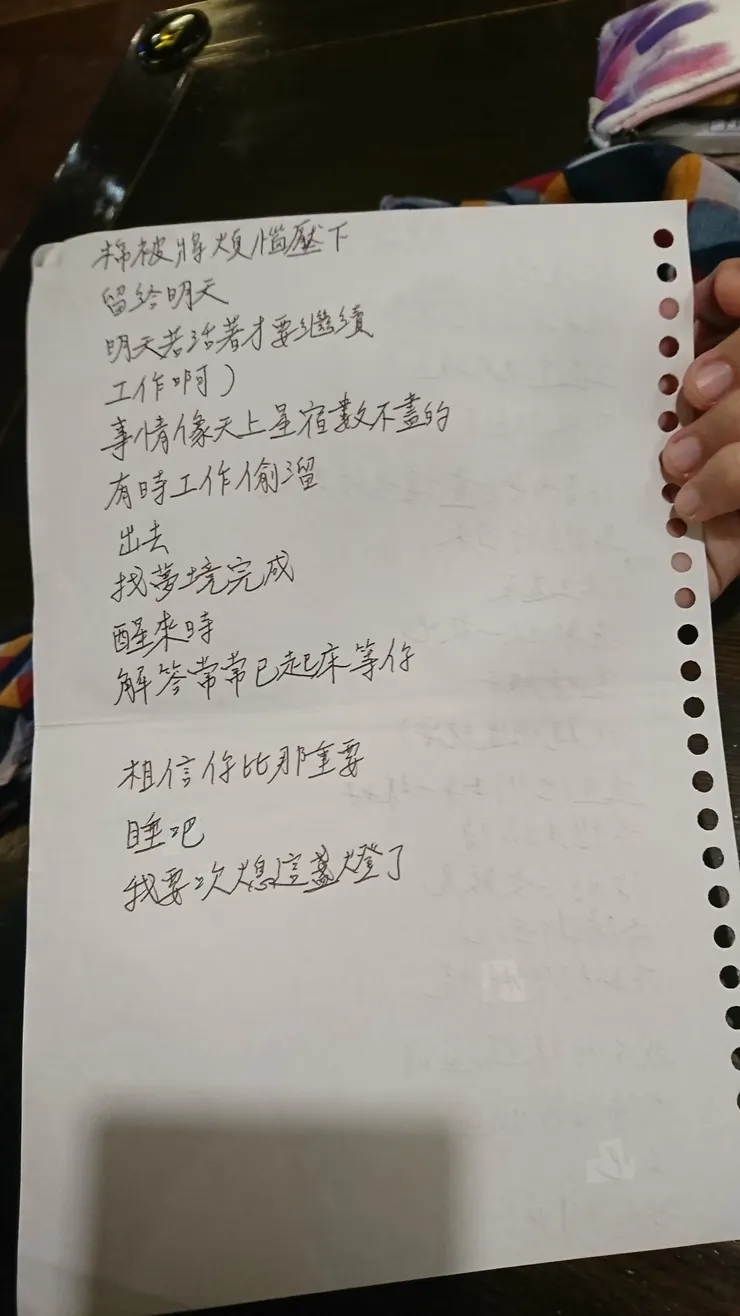 棉被將煩惱壓下
留給明天
明天若活著才要繼續
工作啊)
事情像天上星宿數不盡的
有時工作偷溜
出去
找夢境完成
醒來時
解答常常已起床等你
相信你比那重要
睡吧
我要吹熄這盞燈了